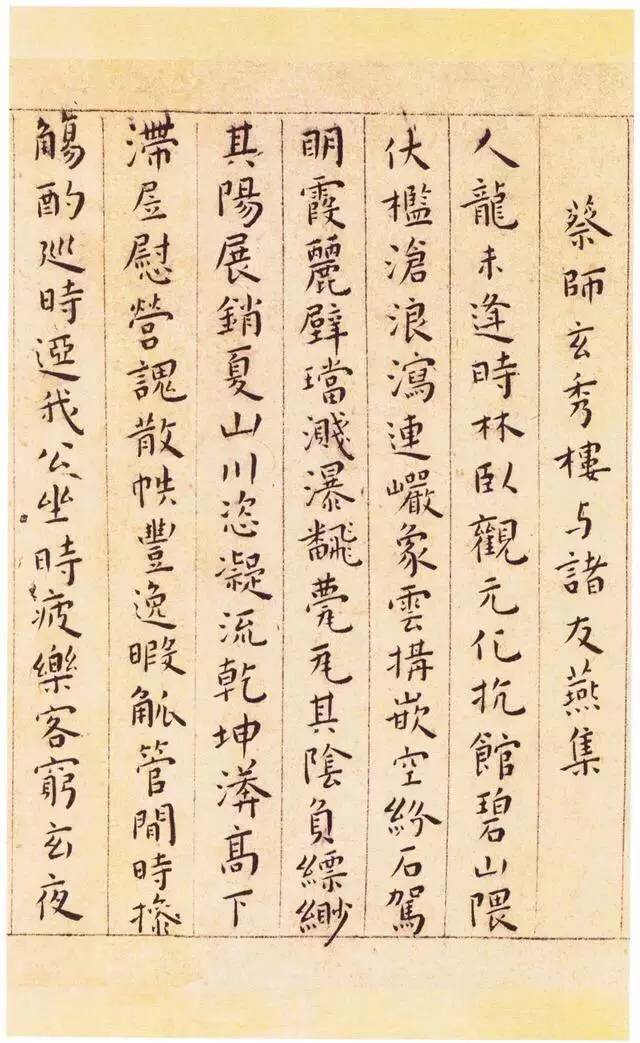 蔡師玄秀樓与諸友燕集
人龍未逢時林臥觀元化抗館碧山隈
伏檻滄浪瀉連巘象雲搆嵌空紛石駕
明霞麗壁璫濺瀑飜甍瓦其陰負縹緲
其陽展銷夏山川恣凝流乾坤濟高下
滯屈慰營謾散帙豐逸暇觚管間時摻
觴酌廵時迓我公坐時疲樂客窮玄夜